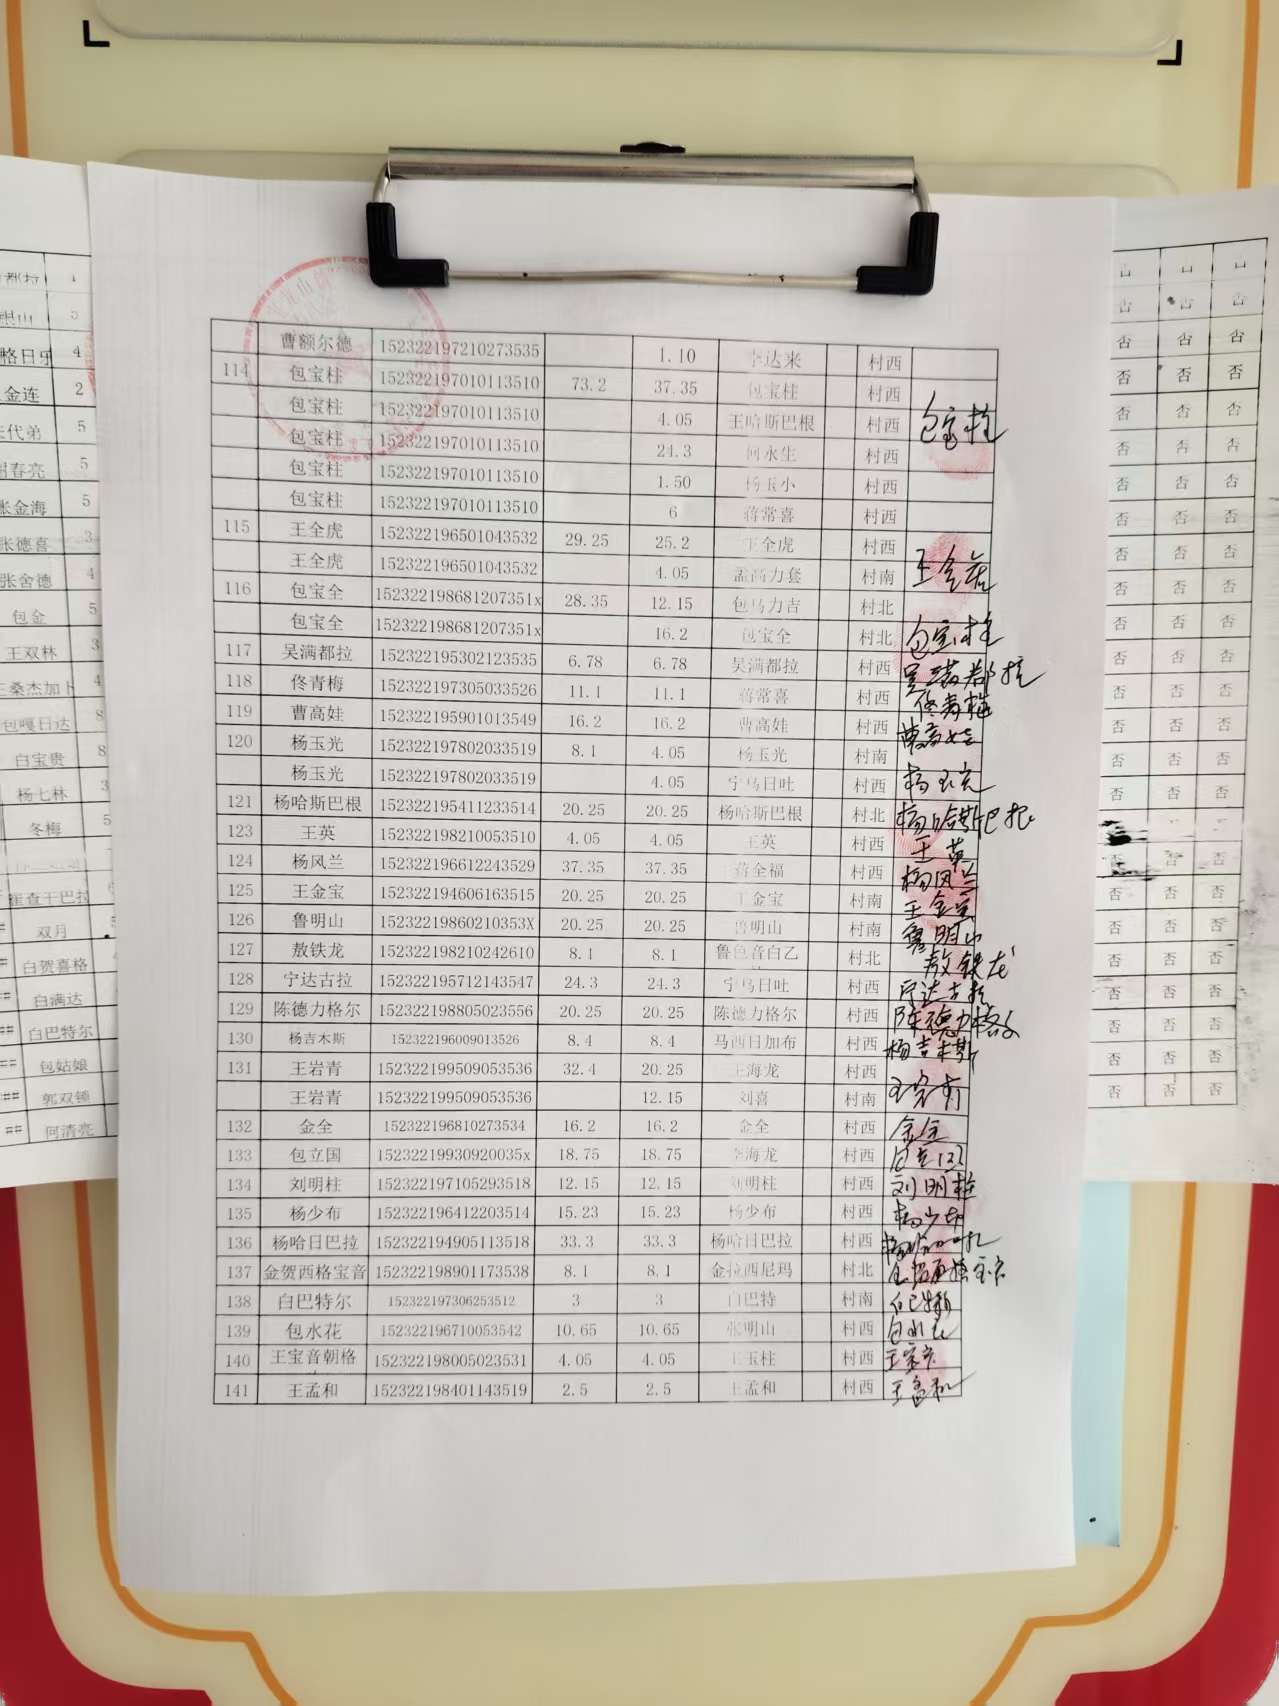 曹额尔德 152322197210273535 1.10 李达来 村西
114 包宝柱 152322197010113510 73.2 37.35 包宝柱 村西
包宝柱 152322197010113510 4.05 王哈斯巴根 村西 包宝柱
包宝柱 152322197010113510 24.3 何永生 村西
包宝柱 152322197010113510 1.50 杨玉小 村西
包宝柱 152322197010113510 6 蒋常喜 村西
115 王全虎 152322196501043532 29.25 25.2 王全虎 村西
王全虎 152322196501043532 4.05 孟高力套 村南 王全虎
116 包宝全 152322198681207351x 28.35 12.15 包马力吉 村北
包宝全 152322198681207351x 16.2 包宝全 村北 包宝柱
117 吴满都拉 152322195302123535 6.78 6.78 吴满都拉 村西 吴满都拉
118 佟青梅 152322197305033526 11.1 11.1 蒋常喜 村西 佟青梅
119 曹高娃 152322195901013549 16.2 16.2 曹高娃 村西 曹高娃
120 杨玉光 152322197802033519 8.1 4.05 杨玉光 村南
杨玉光 152322197802033519 4.05 宁乌日吐 村西 杨玉光
121 杨哈斯巴根 152322195411233514 20.25 20.25 杨哈斯巴根 村北 杨哈斯巴根
123 王英 152322198210053510 4.05 4.05 王英 村西 王英
124 杨风兰 152322196612243529 37.35 37.35 蒋全福 村西 杨风兰
125 王金宝 152322194606163515 20.25 20.25 王金宝 村南 王金宝
126 鲁明山 15232219860210353X 20.25 20.25 鲁明山 村南 鲁明山
127 敖铁龙 152322198210242610 8.1 8.1 鲁色音白乙 村北 敖铁龙
128 宁达古拉 152322195712143547 24.3 24.3 宁乌日吐 村西 宁达古拉
129 陈德力格尔 152322198805023556 20.25 20.25 陈德力格尔 村西 陈德力格尔
130 杨吉木斯 152322196009013526 8.4 8.4 马西日加布 村西 杨吉木斯
131 王岩青 152322199509053536 32.4 20.25 王海龙 村西
王岩青 152322199509053536 12.15 刘喜 村南 王岩青
132 金全 152322196810273534 16.2 16.2 金全 村西 金全
133 包立国 15232219930920035x 18.75 18.75 李海龙 村西 包立国
134 刘明柱 152322197105293518 12.15 12.15 刘明柱 村西 刘明柱
135 杨少布 152322196412203514 15.23 15.23 杨少布 村西 杨少布
136 杨哈日巴拉 152322194905113518 33.3 33.3 杨哈日巴拉 村西
137 金贺西格宝音 152322198901173538 8.1 8.1 金拉西尼玛 村北
138 白巴特尔 152322197306253512 3 3 白巴特 村南 白巴特尔
139 包水花 152322196710053542 10.65 10.65 张明山 村西 包水花
140 王宝音朝格 152322198005023531 4.05 4.05 王玉柱 村西
141 王孟和 152322198401143519 2.5 2.5 王孟和 村西 王孟和
格日乐 4
金连 2
代弟 5
春亮 5
张金海 5
张德喜 3
张舍德 4
包金 5
王双林 3
王桑杰加卜 4
包嘎日达 8
白宝贵 8
杨七林 3
冬梅 5
崔查干巴拉
双月
白贺喜格
白满达
## 白巴特尔
## 包姑娘
## 郭双锁
## 何清亮
否 否 否
否 否 否
否 否 否
否 否 否
否 否 否
否 否 否
否 否 否
否 否 否
否 否 否
否 否 否
否 否 否
否 否 否
否 否 否
否 否 否
否 否
否 否 否
否 否 否
否 否 否
否 否 否
否 否 否
否 否 否
否 否 否
否 否 否